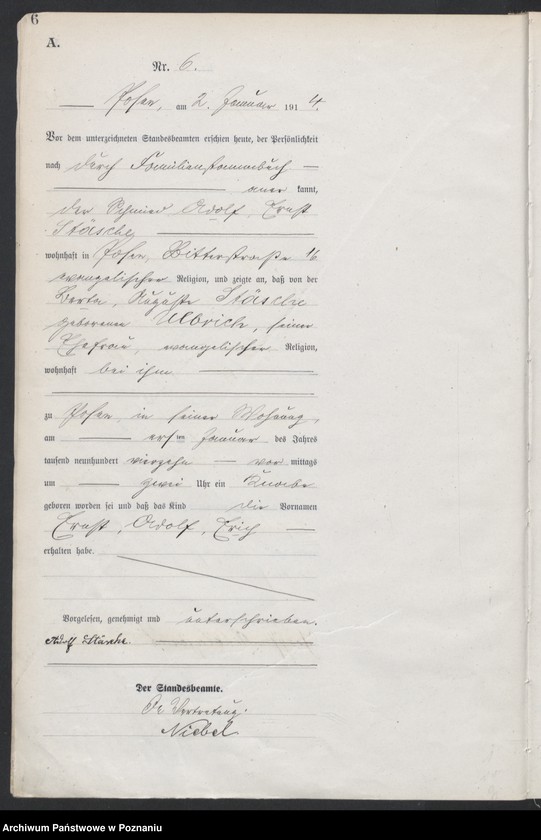 6
A.
Nr. 6.
Posen, am 2. Januar 1914.
Vor dem unterzeichneten Standesbeamten erschien heute, der Persönlichkeit
nach durch Familienstammbuch
aner kannt,
der Schmied Adolf, Ernst
Stäsche
wohnhaft in Posen, Bitterstraße 16
evangelischer Religion, und zeigte an, daß von der
Berta, Auguste Stäsche
geborenen Ulbrich, seiner
Ehefrau, evangelischer Religion,
wohnhaft bei ihm
zu Posen in seiner Wohnung,
am ersten Januar des Jahres
tausend neunhundert vierzehn vor mittags
um zwei Uhr ein Knabe
geboren worden sei und daß das Kind die Vornamen
Ernst, Adolf, Erich
erhalten habe.
Vorgelesen, genehmigt und unterschrieben.
Adolf Stäsche.
Der Standesbeamte.
In Vertretung.
Niebel
Archiwum Państwowe w Poznaniu